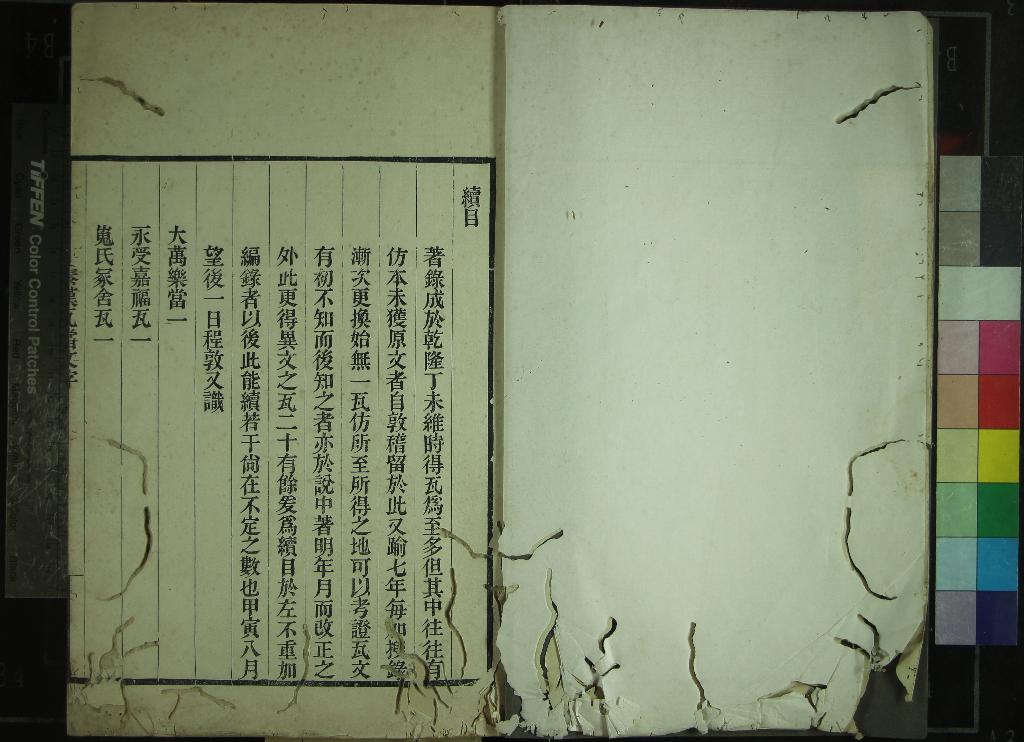 續目
著錄成於乾隆丁未維時得瓦爲至多但其中往往有
仿本未獲原文者自敦稽留於此又踰七年每加搜錄
漸次更換始無一瓦仿所至所得之地可以考證瓦文
有初不知而後知之者亦於說中著明年月而改正之
外此更得異文之瓦二十有餘爰爲續目於左不重加
編錄者以後此能續若干尚在不定之數也甲寅八月
望後一日程敦又識
大萬樂當一
永受嘉福瓦一
嵬氏冢舍瓦一
秦漢瓦當文字
TIFFEN Color Control Patches